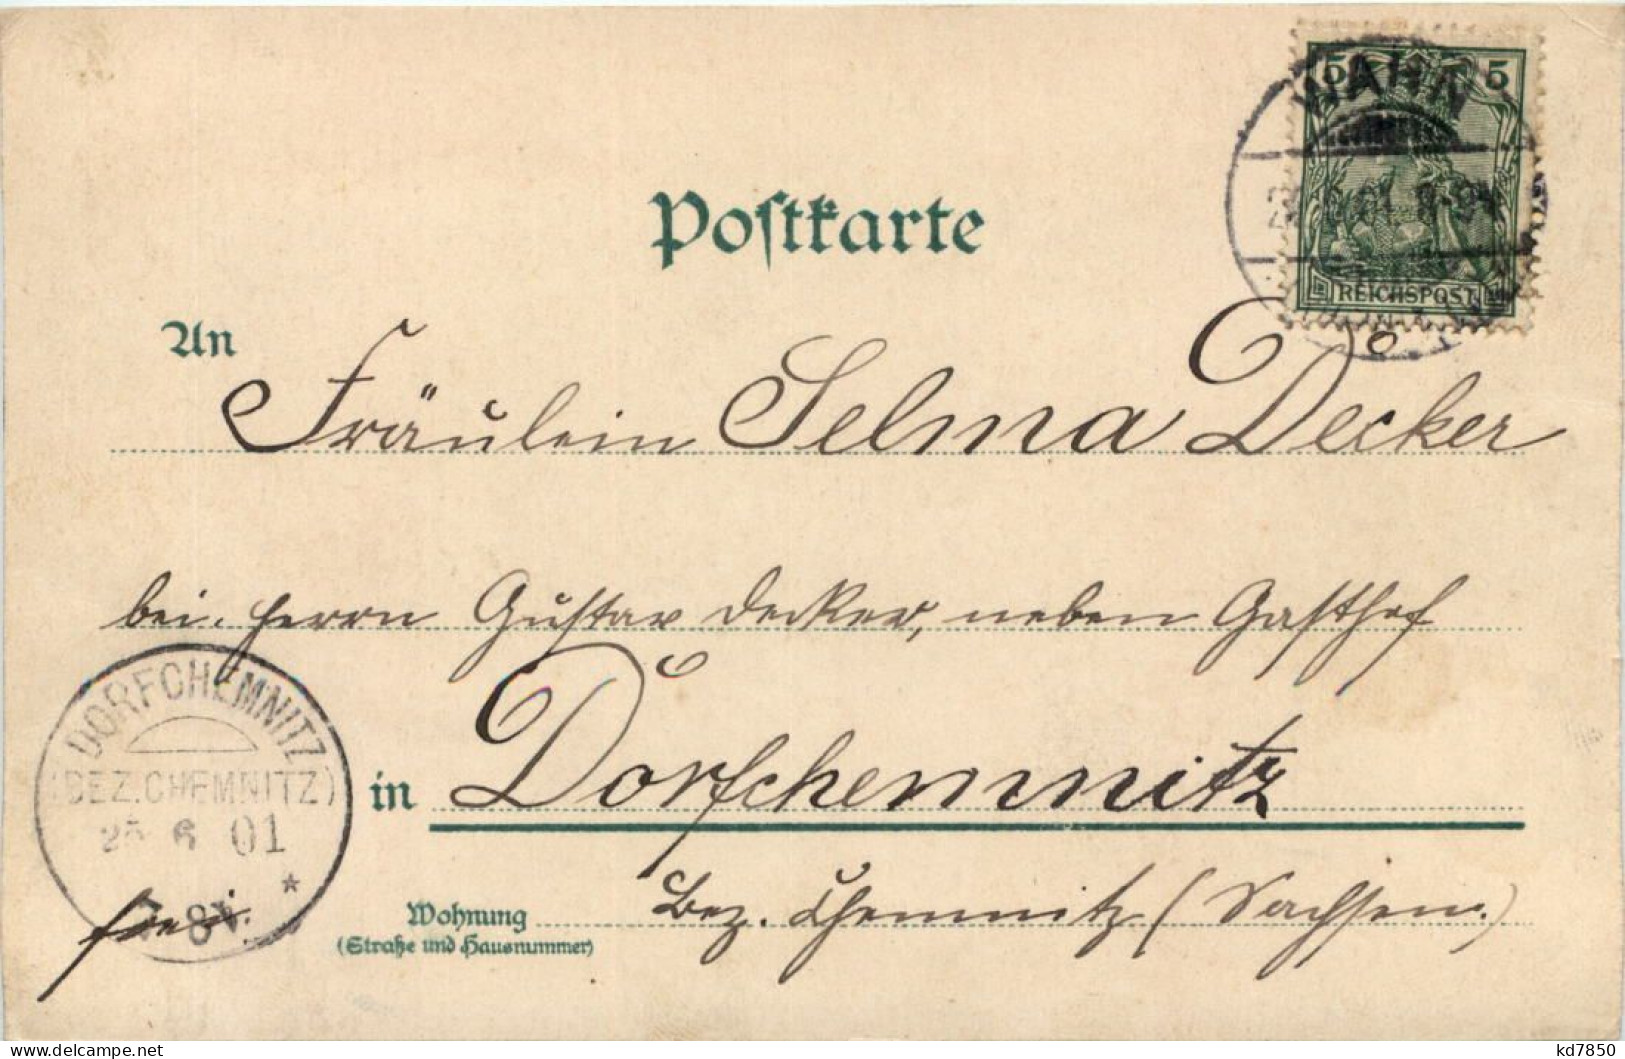 WAHN
5 5
REICHSPOST
Postkarte
An
Fräulein Selma Decker
bei. Herrn Gustav Decker, neben Gasthof
DORFCHEMNITZ
(BEZ. CHEMNITZ)
25 6 01
in Dorfchemnitz
Wohnung
(Straße und Hausnummer)
Bez. Chemnitz (Sachsen.)
frei.
kd7850